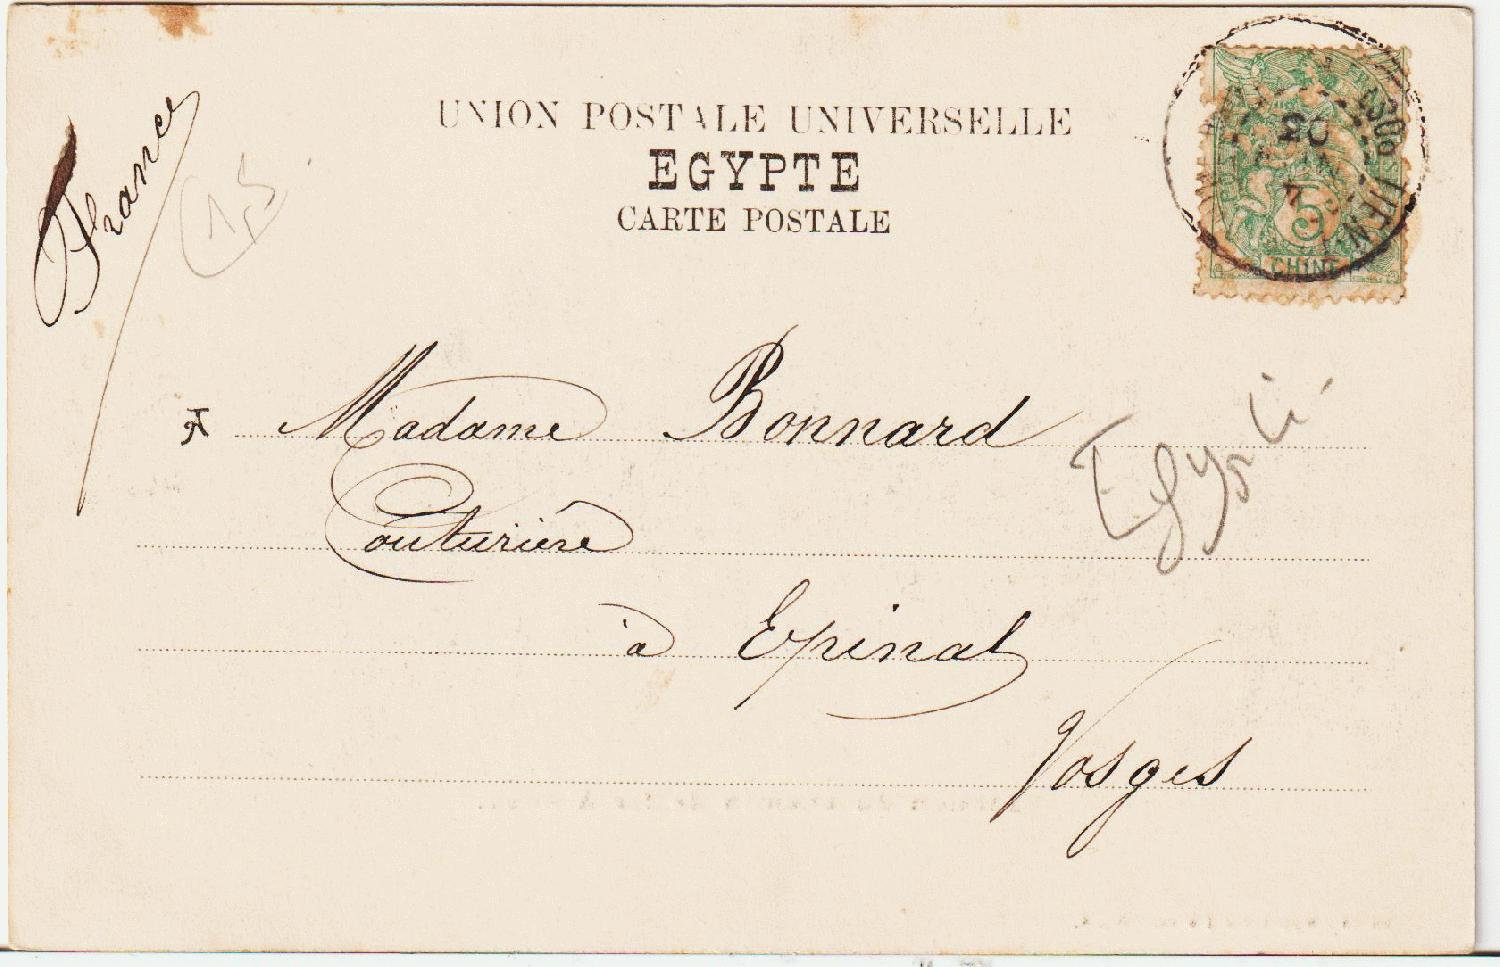 UNION POSTALE UNIVERSELLE
EGYPTE
CARTE POSTALE
France
CHINE
5
Madame Bonnard
Couturière
à Epinal
Vosges